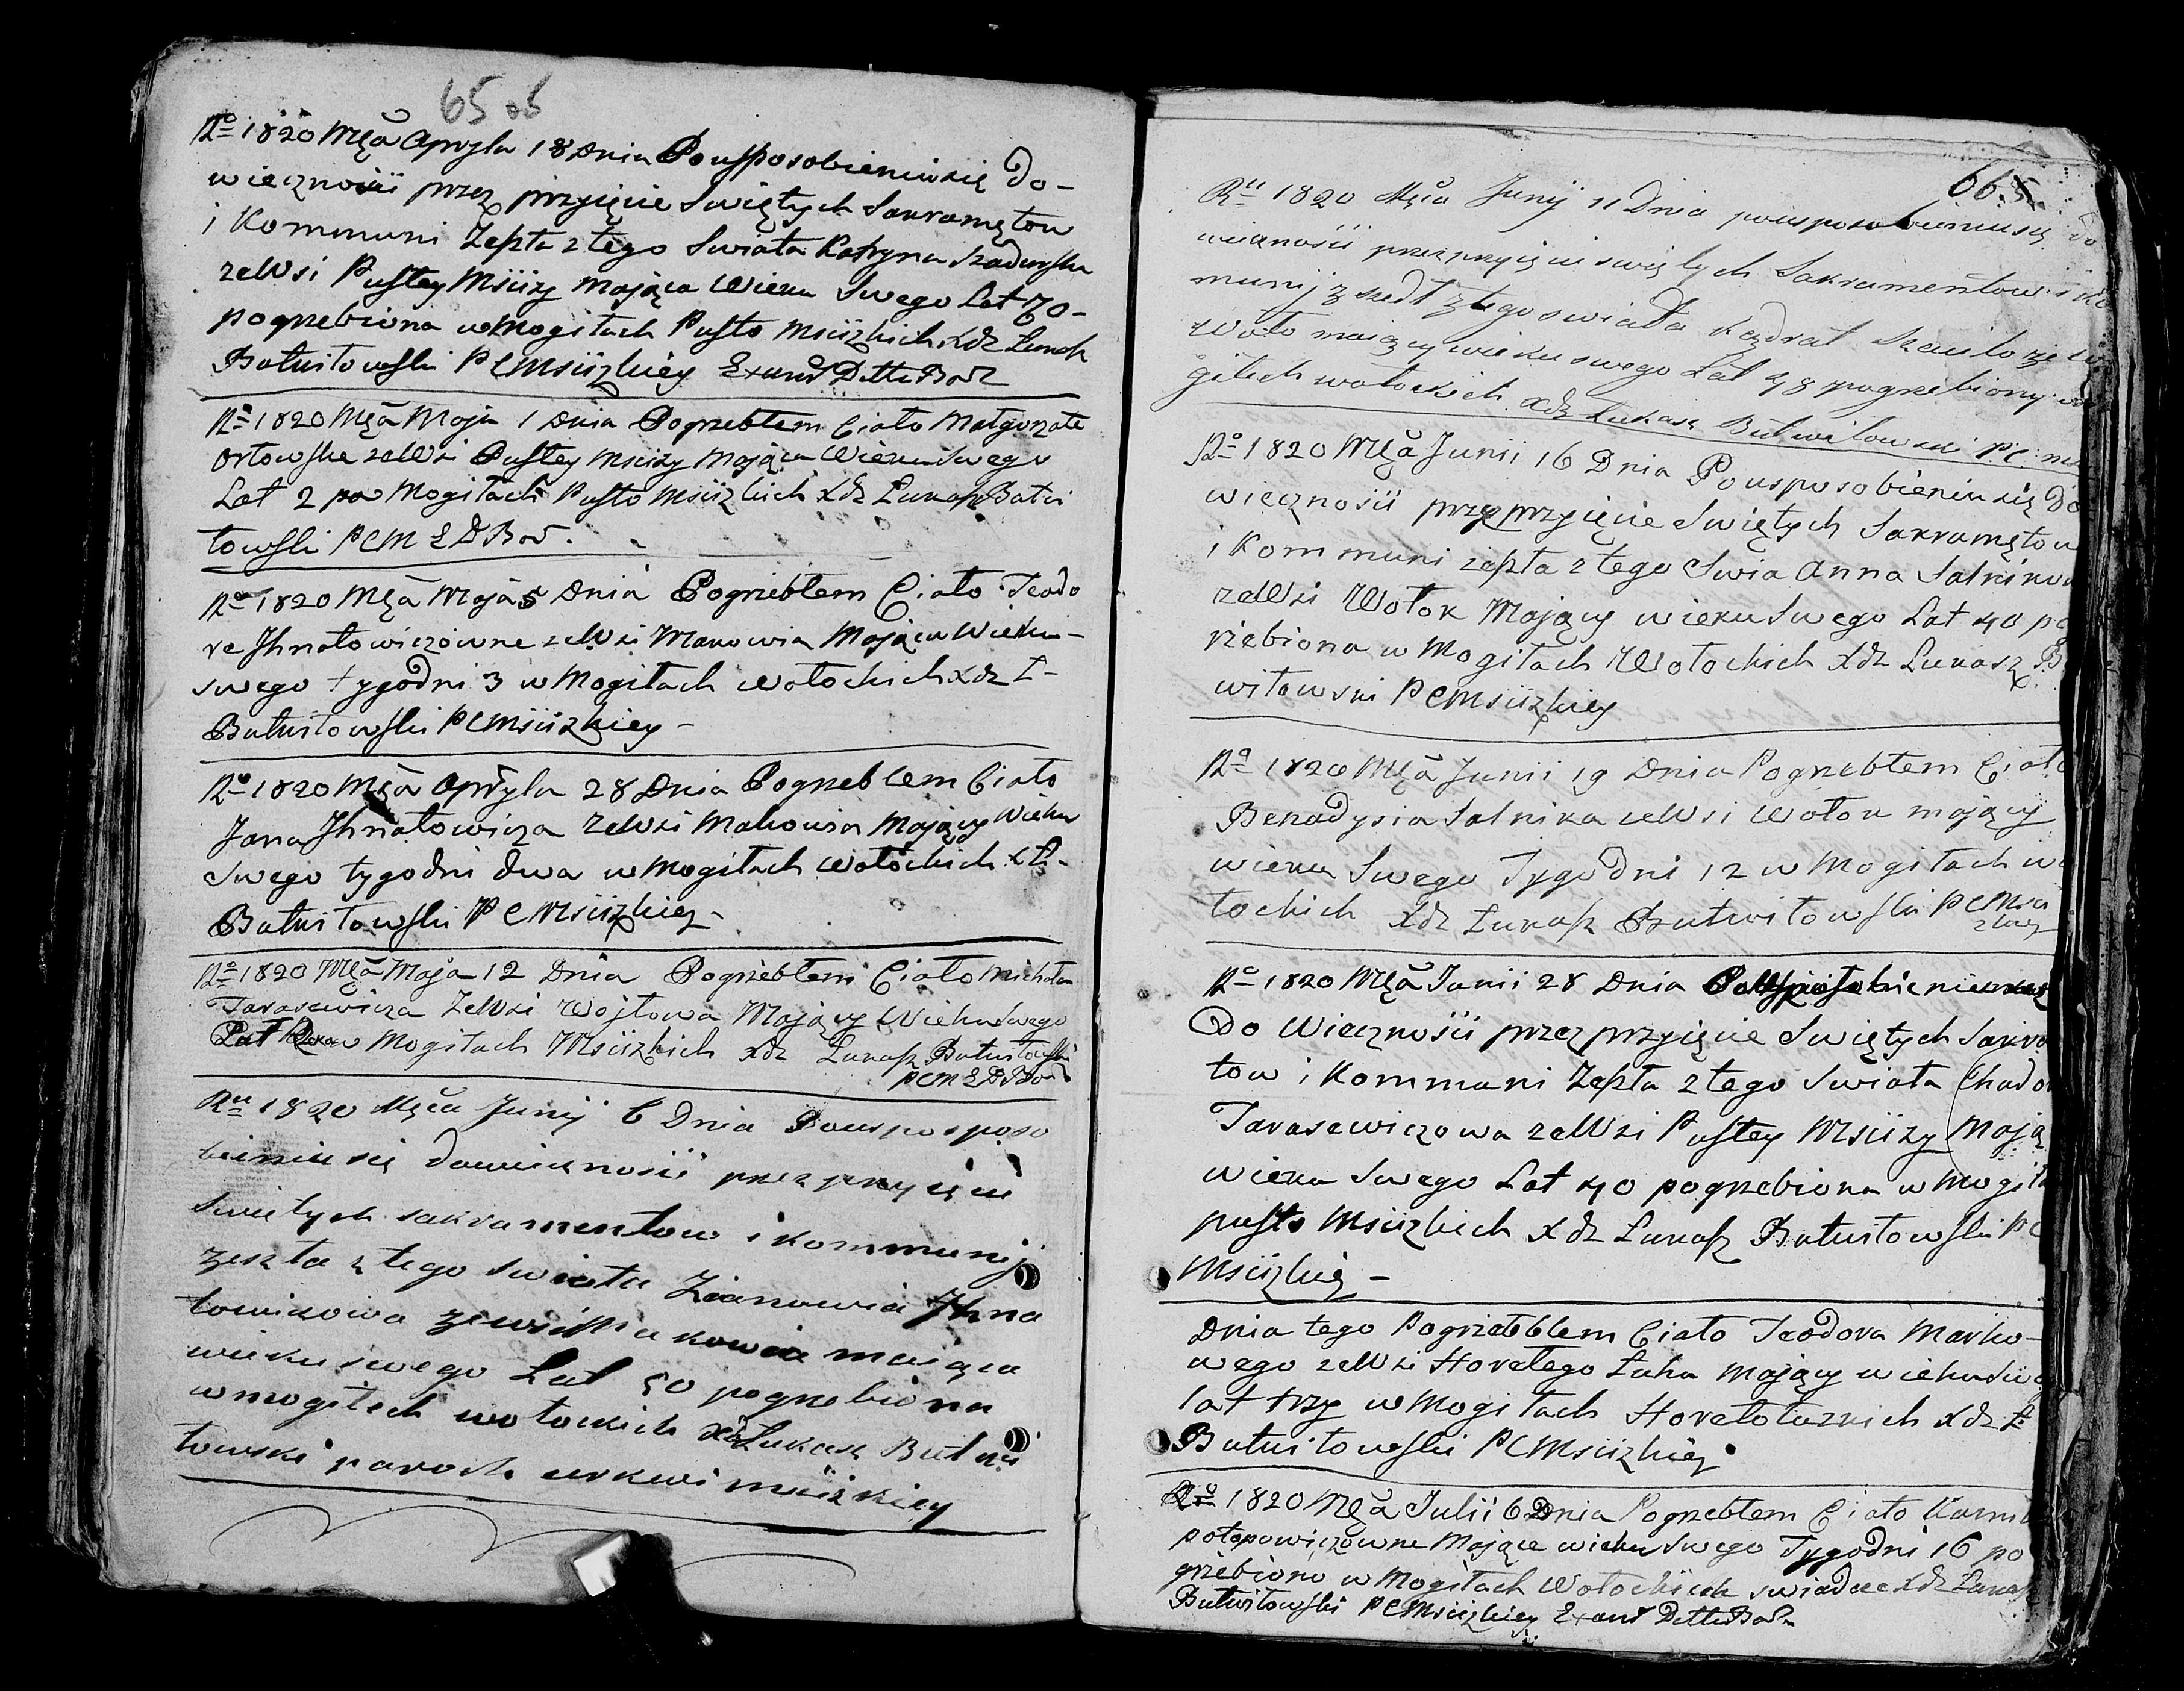 65 об
Rº 1820 Mcа Apryla 18 Dnia Pousposobieniusię Do-
wiecznosii przez przyięcie Swiętych Sakramętow
i Kommuni Zeszła z tego Swiata Katryna
zeWsi Pustey Msiizy Mająca Wieku Swego Lat 70-
pogrzebiona w Mogiłach Pusto Msiizkich Xdz Łukasz
Butwiłowski PCMsiizkiey
Rº 1820 Mca Maja 1 Dnia Pogrzebłem Ciało Małgorzate
Orłowske zeWsi Pustey Msiizy Mająca Wieku Swego
Lat 2 Mogiłach Pusto Msiizkich Xdz Łukasz Butwi
łowski PCM
Rº 1820 Mca Maja 5 Dnia Pogrzebłem Ciało Teodo
re Ihnatowiczowne zeWsi Makowia Mająca Wieku-
swego tygodni 3 w Mogiłach Wołockich Xdz Ł-
Butwiłowski PCMsiizkiey-
Rº 1820 Mca Apryla 28 Dnia Pogrzebłem Ciało
Jana Ihnatowicza zeWsi Makowia Mający Wieku
Swego tygodni dwa w Mogiłach Wołockich X Ł-
Butwiłowski PCMsiizkiey-
Rº 1820 Mca Maja 12 Dnia Pogrzebłem Ciało Michała
Tarasewicza ZeWsi Wojtowa Mający Wieku Swego
Lat Mogiłach Msiizkich Xdz Łukasz Butwiłowski
PCM
Ru 1820 Męca Junij 6 Dnia Pousposposo
bieniusię dowiecznosii przez przyięcie
Swiętych sakramentow i kommunij
zeszła z tego Swiata Zianowia Ihna
towiczowa zewsi Makowia maiąca
wieku swego Lat 50 pogrzebiona
w mogiłach wołockich Xdz Łukasz Butwi
łowski paroch cerkwi msiizkiey
66.
Ru 1820 Męca Junij 11 Dnia pousposobieniusię do
wiecznosii przez przyięcie swiętych Sakramentow i ko
munij zszedł z tego swiata Kazdrat zewsi
Woło maiący wieku swego Lat 48 pogrzebiony w
giłach wołockich Xdz Łukasz Butwiłowski PC
Rº 1820 Mca Junii 16 Dnia Pousposobieniusię Do
wiecznosii przez przyięcie Swiętych Sakramętow
i Kommuni zeszła z tego Swia Anna Salnikowa
zeWsi Wołok Mający wieku Swego Lat 40 po
rzebiona w Mogiłach Wołockich Xdz Łukasz B
wiłowski PCMsiizkiey
Rº 1820 Mca Junii 19 Dnia Pogrzebłem Ciało
Benadysia Salnika zeWsi Wołok mający
wieku Swego Tygodni 12 w Mogiłach wo
łockich Xdz Łukasz Butwiłowski PCMsii
zkiey
Rº 1820 Mca Junii 28 Dnia
Do Wiecznosii przez przyięcie Swiętych Sakra
tow i Kommuni Zeszła z tego Swiata Chado
Tarasewiczowa zeWsi Pustey Msiizy Mają
wieku Swego Lat 40 pogrzebiona w Mogiła
pusto Msiizkich Xdz Łukasz Butwiłowski PC
Msiizkiey-
Dnia tego Pogrzebłem Ciało Teodora Marko-
wego zeWsi Horełego Łuha Mający wieku Sweg
lat trzy w Mogiłach Horełołuzkich Xdz Ł
Butwiłowski PCMsiizkiey
Rº 1820 Mca Julii 6 Dnia Pogrzebłem Ciało
potopowiczowne Mające wieku Swego Tygodni 16 po
grzebiono w Mogiłach Wołockich swiadcze Xdz Łukasz
Butwiłowski PCMsiizkiey